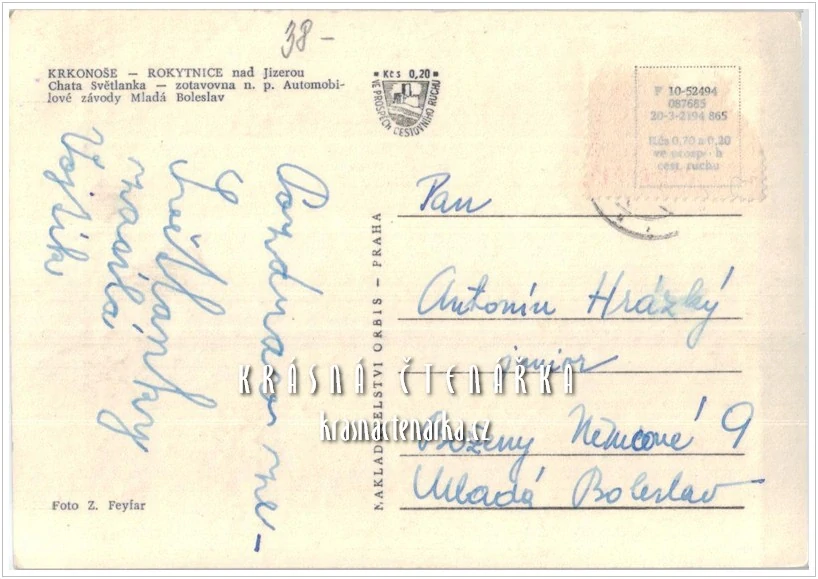 38-
KRKONOŠE — ROKYTNICE nad Jizerou
Chata Světlanka — zotavovna n. p. Automobi-
lové závody Mladá Boleslav
Kčs 0,20
VE PROSPĚCH CESTOVNÍHO RUCHU
F 10-52494
087685
20-3-2194 865
Kčs 0,70 a 0,20
ve prosp. h
cest. ruchu
Pozdrav ze
Světlanky
zasílá
Vojtík
NAKLADATELSTVÍ ORBIS — PRAHA
Pan
Antonín Hrázký
junior
KRÁSNÁ ČTENÁŘKA
krasnactenarka.cz
Boženy Němcové 9
Mladá Boleslav
Foto Z. Feyfar